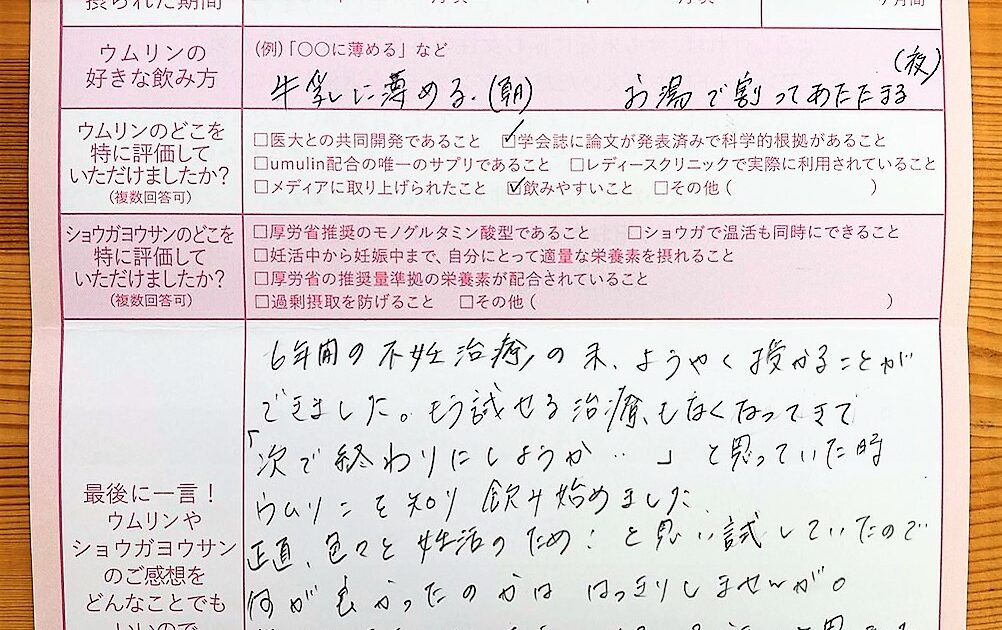 摂られた期間
ヶ月頃
ヶ月頃
ヶ月間
ウムリンの
好きな飲み方
(例)「〇〇に薄める」など
牛乳に薄める.(朝) お湯で割ってあたたまる(夜)
ウムリンのどこを
特に評価して
いただけましたか?
(複数回答可)
□医大との共同開発であること ☑学会誌に論文が発表済みで科学的根拠があること
□umulin配合の唯一のサプリであること □レディースクリニックで実際に利用されていること
□メディアに取り上げられたこと ☑飲みやすいこと □その他( )
ショウガヨウサンのどこを
特に評価して
いただけましたか?
(複数回答可)
□厚労省推奨のモノグルタミン酸型であること □ショウガで温活も同時にできること
□妊活中から妊娠中まで、自分にとって適量な栄養素を摂れること
□厚労省の推奨量準拠の栄養素が配合されていること
□過剰摂取を防げること □その他( )
最後に一言!
ウムリンや
ショウガヨウサン
のご感想を
どんなことでも
いいので
6年間の不妊治療の末、ようやく授かることが
できました。もう試せる治療もなくなってきて
「次で終わりにしようか‥」と思っていた時
ウムリンを知り飲み始めました.
正直、色々と妊活のため!と思い試していたので
何が良かったのかははっきりしませんが。